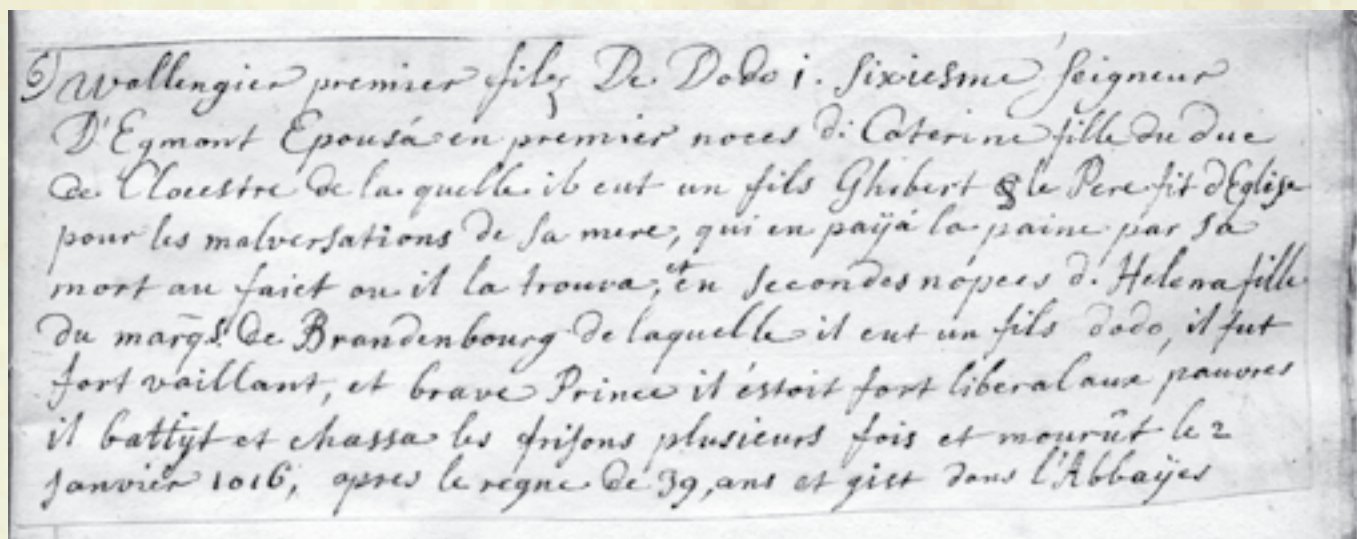 6) Wollengier premier filz De Dodo i. sixiesme seigneur
D'Egmont Epousá en premier noces di Caterine fille du duc
de Clocestre de la quelle il eut un fils Ghibert § le Pere fit d'Eglise
pour les malversations de sa mere, qui en paÿá la paine par sa
mort au faict ou il la trouva, et en secondes nopces d. Helena fille
du marq̄s. de Brandenbourg de laquelle il eut un fils dodo, il fut
fort vaillant, et brave Prince il éstoit fort liberal aux pauvres
il battyt et chassa les frisons plusieurs fois et mourût le 2
janvier 1016, apres le regne de 39, ans et gist dans l'Abbaÿes